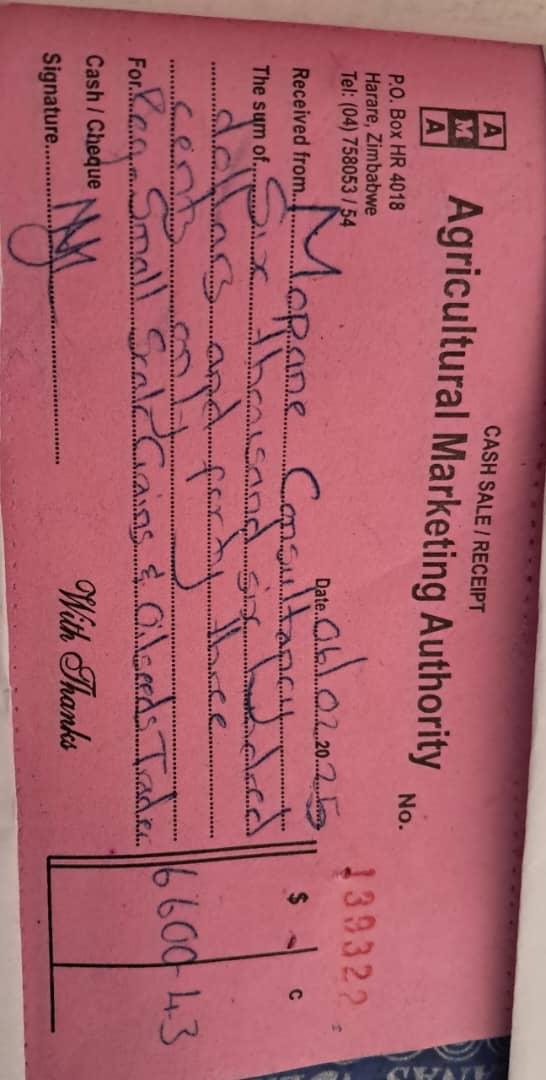 CASH SALE / RECEIPT
A
M
A
Agricultural Marketing Authority
P.O. Box HR 4018
Harare, Zimbabwe
Tel: (04) 758053 / 54
No. 139322
Date 06/02 20 25
Received from Mopane Consultancy
The sum of Six thousand six hundred
dollars and forty three
cents only
For Small Scale Grains & Oilseeds Trader
$ c
6600-43
Cash / Cheque
Signature
With Thanks